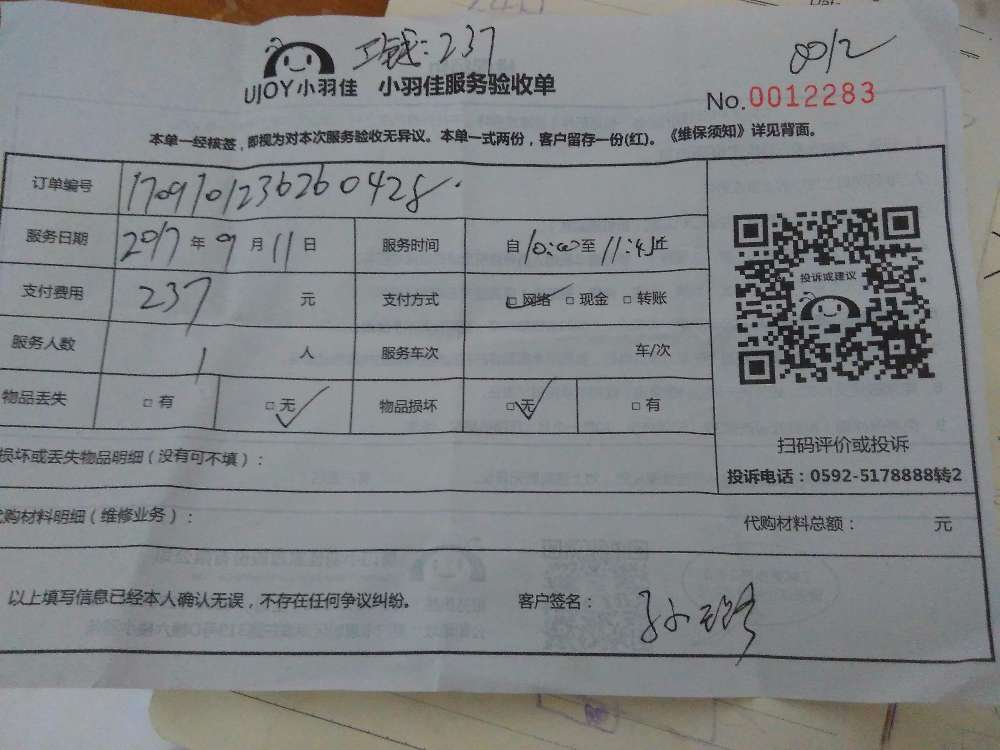 工钱:237
0012
UJOY小羽佳 小羽佳服务验收单
No.0012283
本单一经核签,即视为对本次服务验收无异议。本单一式两份,客户留存一份(红)。《维保须知》详见背面。
订单编号 1709101236260428
服务日期 2017年9月11日 服务时间 自10:00至11:45止
支付费用 237 元 支付方式 □网络 □现金 □转账
投诉或建议
服务人数 1 人 服务车次 车/次
物品丢失 □有 □无 物品损坏 □无 □有
扫码评价或投诉
损坏或丢失物品明细(没有可不填):
投诉电话:0592-5178888转2
代购材料明细(维修业务): 代购材料总额: 元
以上填写信息已经本人确认无误,不存在任何争议纠纷。 客户签名: